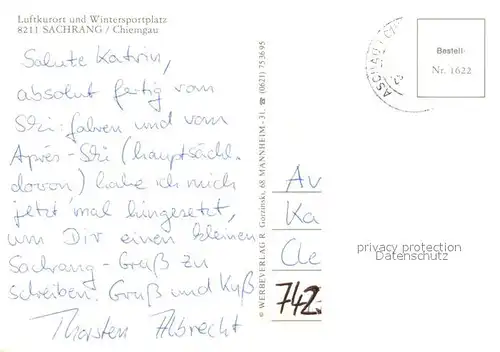 Luftkurort und Wintersportplatz
8211 SACHRANG / Chiemgau
Salute Katrin,
absolut fertig vom
Ski-fahren und vom
Après-Ski (hauptsächl.
davon) habe ich mich
jetzt 'mal hingesetzt,
um Dir einen kleinen
Sachrang-Gruß zu
schreiben. Gruß und Kuß
Thorsten Albrecht
© WERBEVERLAG R. Gorzinski, 68 MANNHEIM-31, ☎ (0621) 753695
ASCHAU I. CH
Bestell-
Nr. 1622
Av
Ka
Cle
742
privacy protection
for AK-ID: